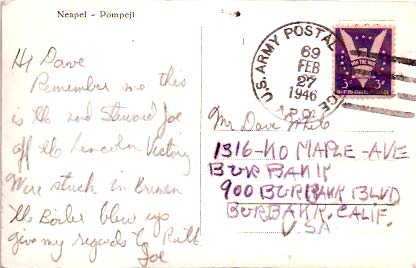 Neapel - Pompeji
Hy Dave
Remember me this
is the 2nd Steward Joe
off the Lincoln Victory
Were stuck in Bremen
the Boiler blew up
give my regards to Ruth
Joe
U.S. ARMY POSTAL
69
FEB
27
1946
WIN THE WAR
3¢ 3¢
Mr Dave White
1316-NO MAPLE-AVE
BURBANK
900 BURBANK BLVD
BURBANK. CALIF.
USA